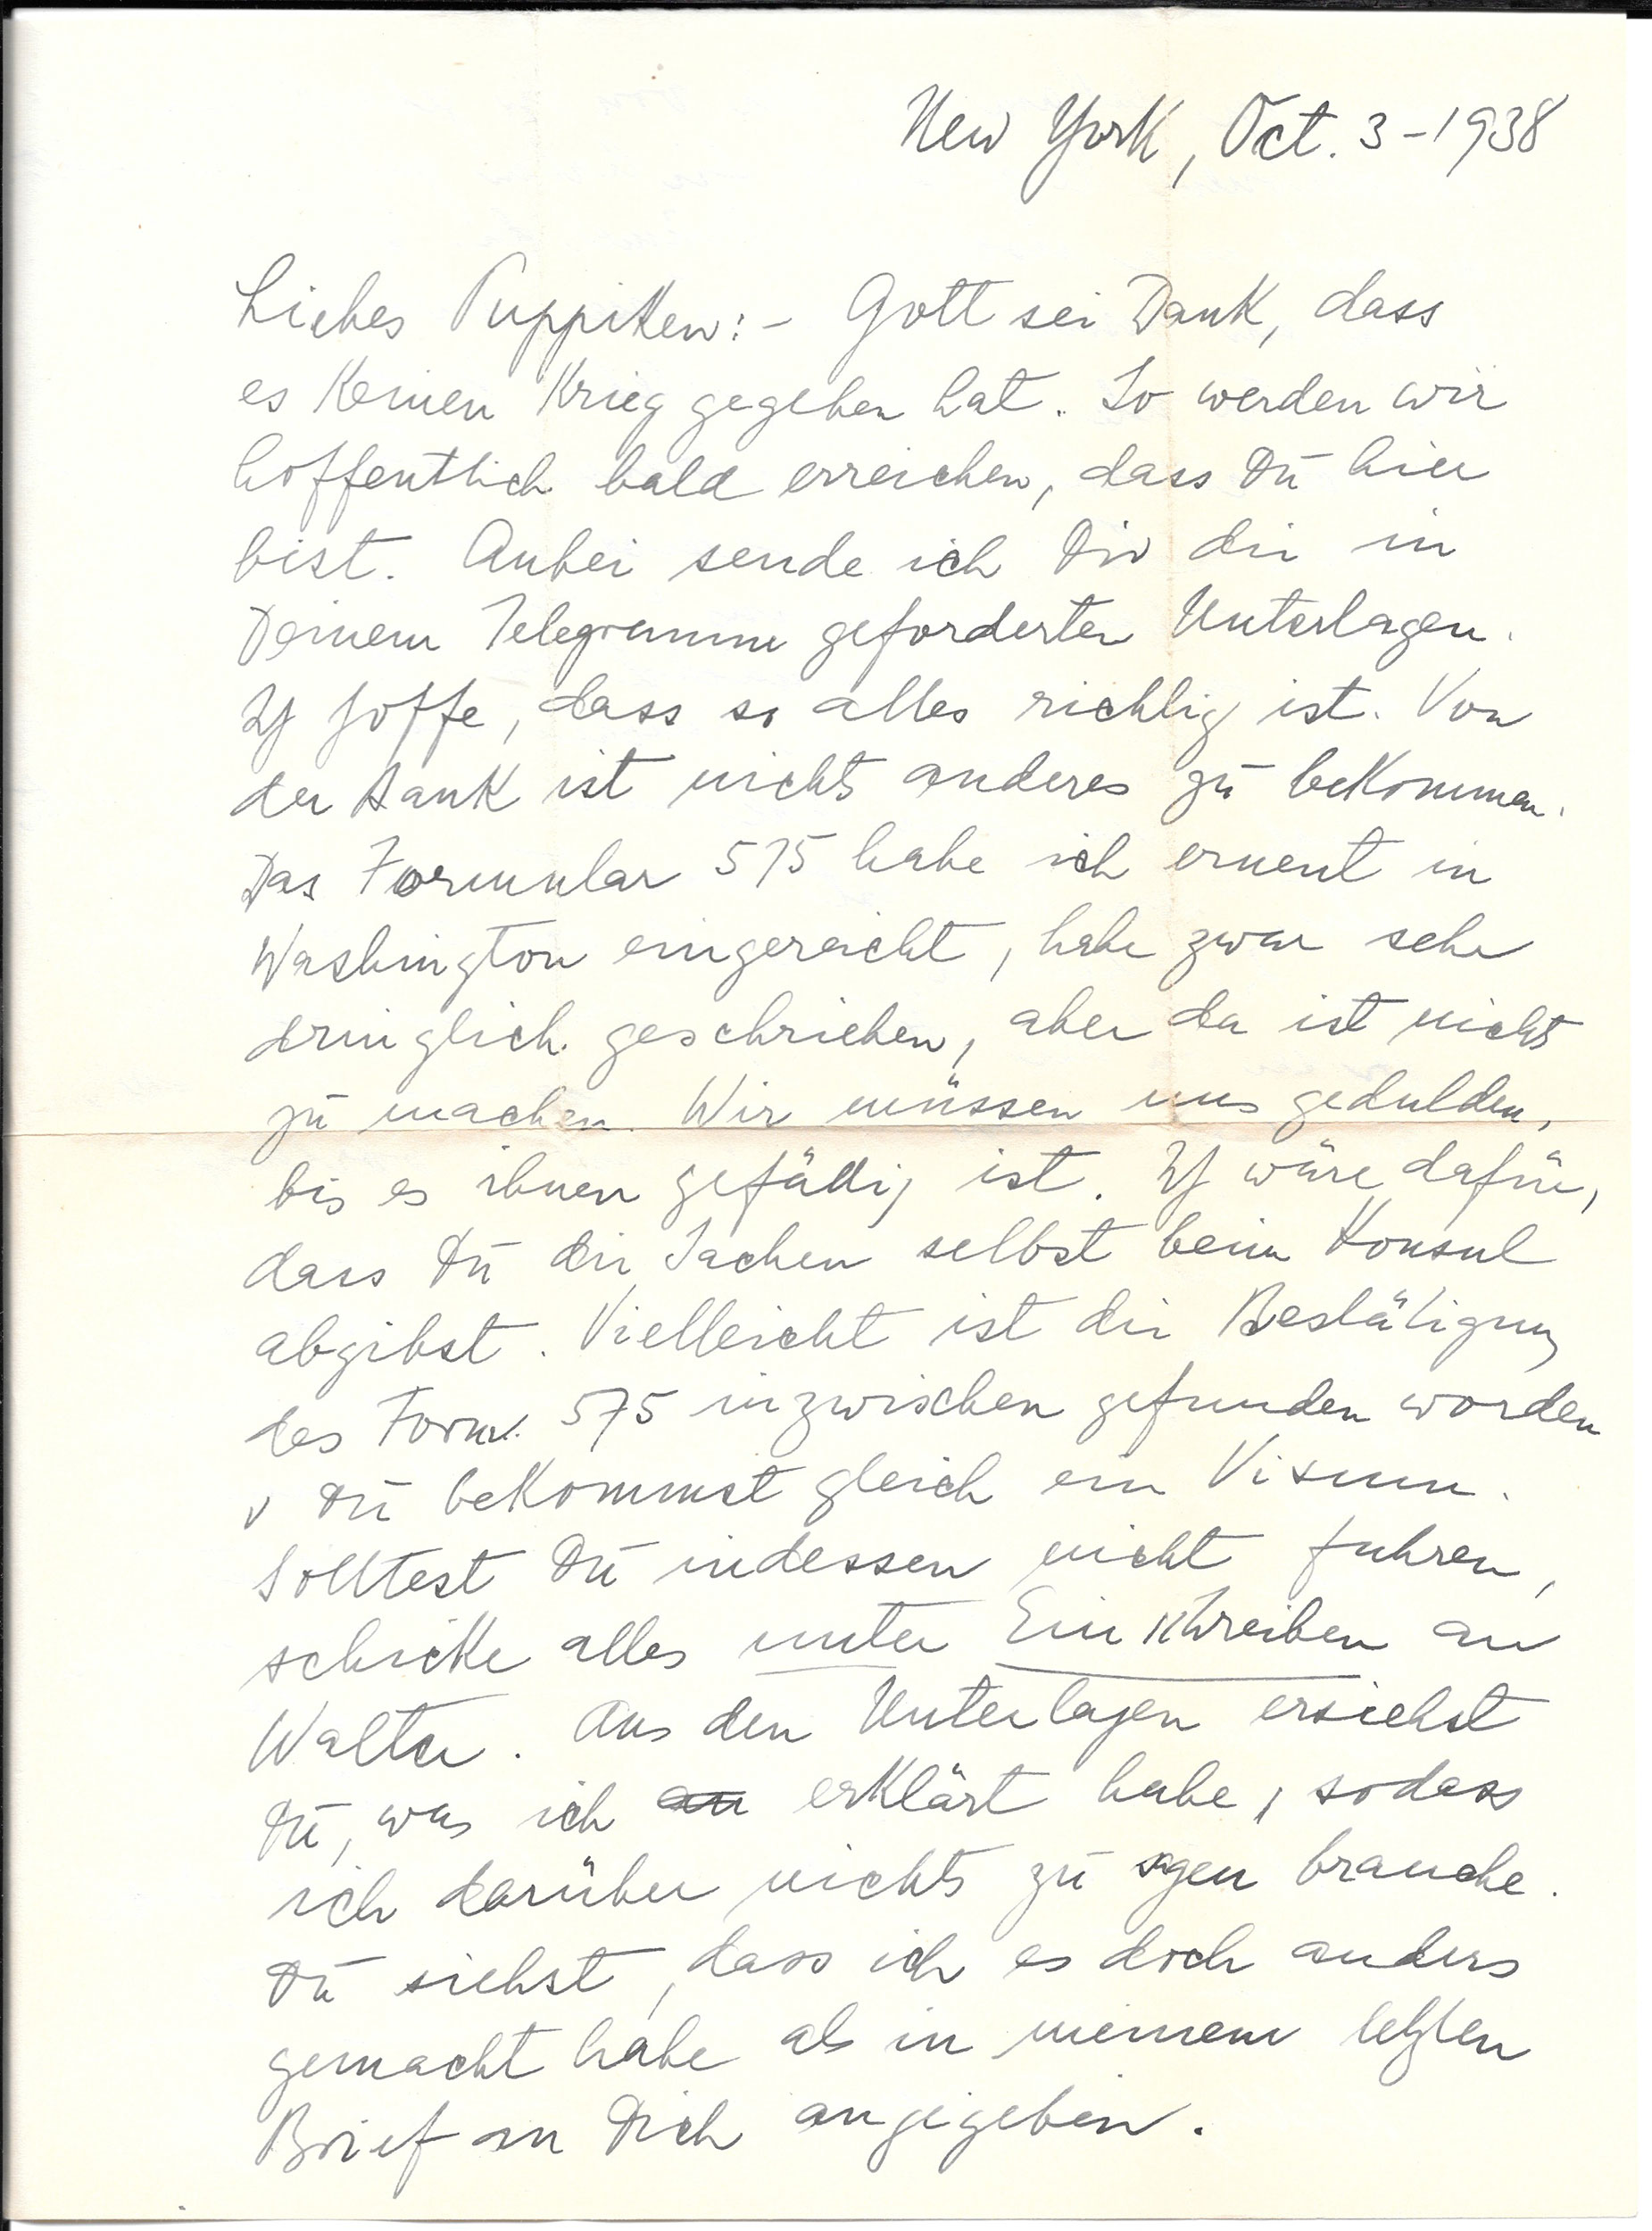 New York, Oct. 3-1938
Liebes Puppiken:- Gott sei Dank, dass
es keinen Krieg gegeben hat. So werden wir
hoffentlich bald erreichen, dass Du hier
bist. Anbei sende ich Dir die in
Deinem Telegramm geforderten Unterlagen.
Ich hoffe, dass so alles richtig ist. Von
der Bank ist nichts anderes zu bekommen.
Das Formular 575 habe ich erneut in
Washington eingereicht, habe zwar sehr
dringlich geschrieben, aber da ist nichts
zu machen. Wir müssen uns gedulden,
bis es ihnen gefällig ist. Ich wäre dafür,
dass Du die Sachen selbst beim Konsul
abgibst. Vielleicht ist die Bestätigung
des Form. 575 inzwischen gefunden worden
u Du bekommst gleich ein Visum.
Solltest Du indessen nicht fahren,
schicke alles unter Einschreiben an
Walter. Aus den Unterlagen ersiehst
Du, was ich an erklärt habe, sodass
ich darüber nichts zu sagen brauche.
Du siehst, dass ich es doch anders
gemacht habe als in meinem letzten
Brief an Dich angegeben.